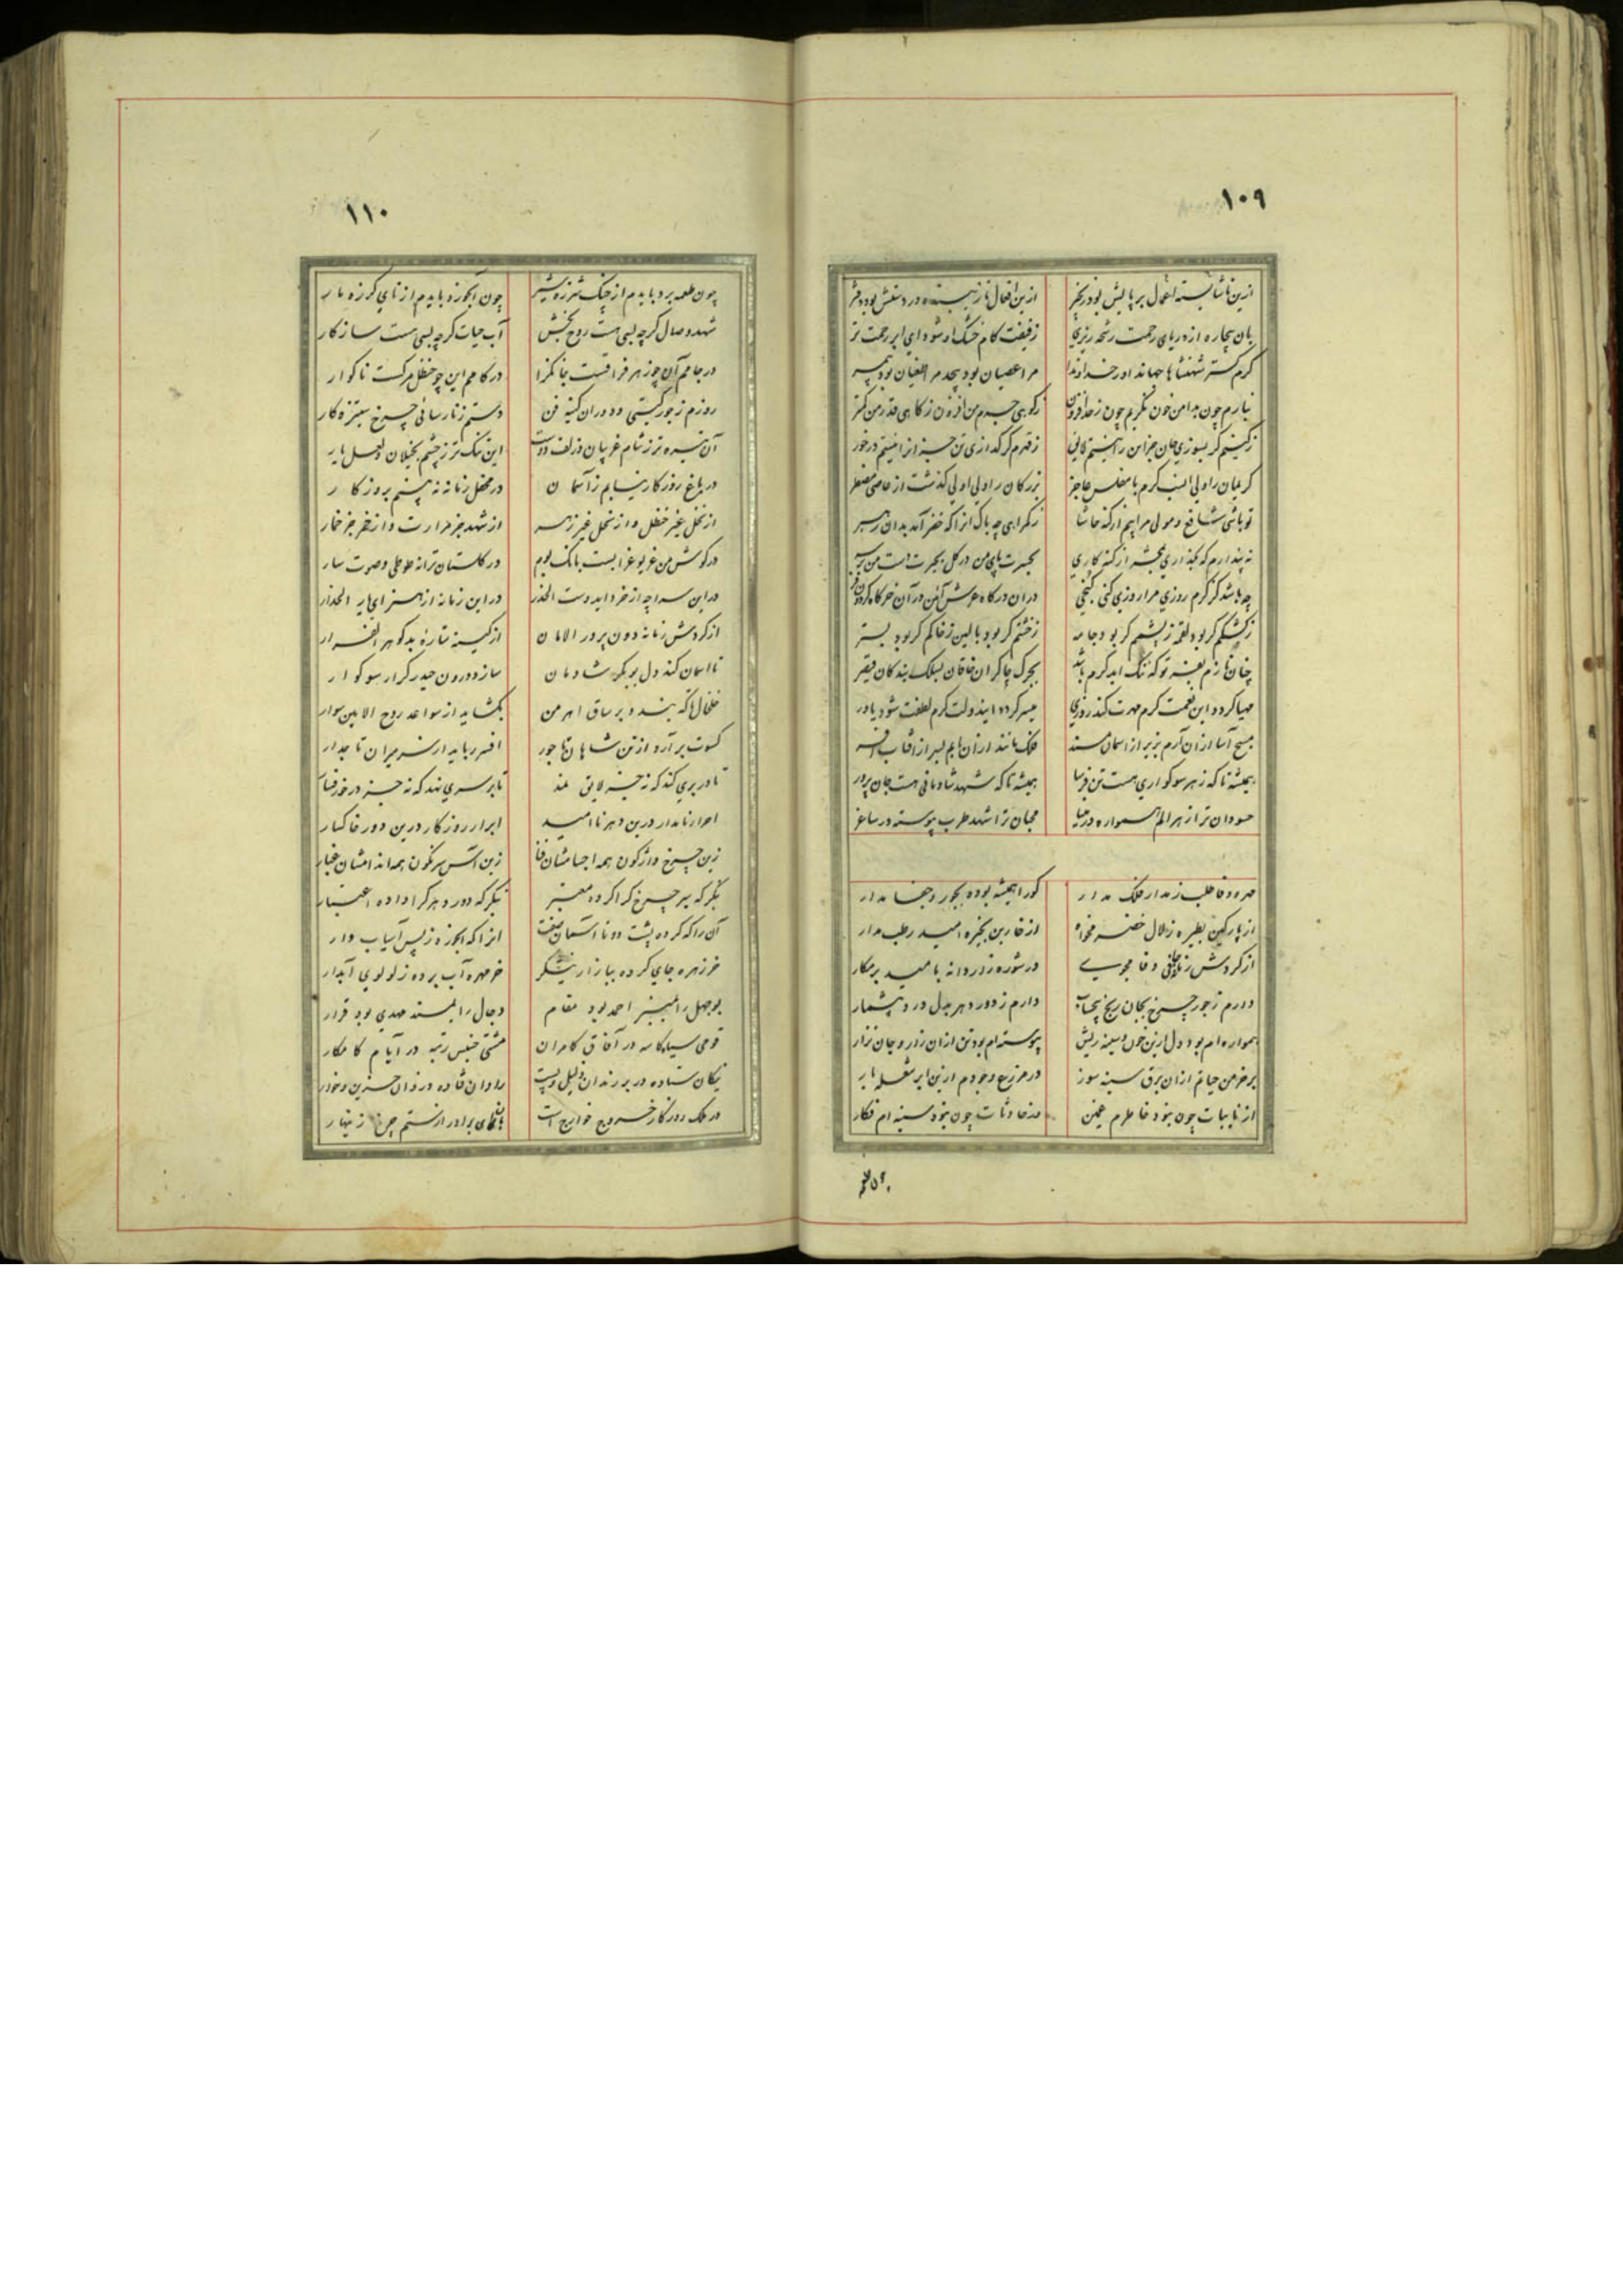 ١٠٩
ازین ناشایسته اعمال بر پایش بود زنجیر
ازین افعال نازیبنده در دستش بود دفتر
بان بیچاره از دریای رحمت رشحه ریزی
زفیضت کام خشک او شود ای ابر رحمت تر
کرم کستر شهنشاها جهاندار خداوندا
مرا عصیان بود بیحد مرا طغیان بود بیمر
نیارم چون بدامن خون نگریم چون ز حد افزون
ز کوهی جرم من افزون ز کاهی قدر من کمتر
ز کینم کر بسوزی جان جز این را نیستم لایق
ز قهرم کر گدازی تن جز انرا نیستم درخور
کریمان را ولی انسب کرم با مفلس عاجز
بزرکان را ولی اولی گذشت از عاصی مضطر
تو باشی شافع و مولی مرا بیم از کنه حاشا
ز کمراهی چه باک انرا که خضر آمد بدان رهبر
نه پندارم که بگذاری بحشر از کنه کاری
بحسرت پای من در کل بحیرت دست من بر سر
چه باشد کز کرم روزی مرا روزی کنی کنجی
در ان درکاه عرش آئین در آن خرکاه کردون فر
ز کشکم کر بود لقمه ز پشمم کر بود جامه
ز خشتم کر بود بالین ز خاکم کر بود بستر
چنان نازم بفقر تو که ننک اید کرم باشد
بجرک چاکران خاقان بسلک بندکان قیصر
مهیا کردد این نعمت کرم مهرت کند روزی
میسر کردد ایندولت کرم لطفت شود یاور
مسیح آسا ازان آرم بزیر از اسمان مسند
فلک مانند ازان یابم بسر از افتاب افسر
همیشه تا که زهر سوکواری هست تن فرسا
همیشه تا که شهد شادمانی هست جان پرور
حسودان ترا زهر الم همواره در مینا
محبان ترا شهد طرب پیوسته در ساغر
مهر و وفا طلب ز مدار فلک مدار
کورا همیشه بوده بجور و جفا مدار
از پارکین بطیره زلال خضر مخواه
از خاربن بخیره امید رطب مدار
از کردش زمانه وفا مجوی
در شوره زار دانه بامید بر مکار
دارم ز جور چرخ بجان رنج بیحساب
دارم ز دور دهر بدل درد بیشمار
همواره ام بود دل ازین خون و سینه ریش
پیوسته ام بود تن ازان زار و جان نزار
بر خرمن حیاتم ازان برق سینه سوز
در مزرع وجودم ازین ابر شعله بار
از نایبات چون بنود خاطرم غمین
وز حادثات چون بنود سینه ام فکار
١١٠
چون طعمه برد بایدم از چنک شرزه شیر
چون آبخورد بایدم از نای کرزه مار
شهد وصال کرچه بسی هست روح بخش
آب حیات کرچه بسی هست سازکار
در جامم آن چو زهر فراقست جانکزا
در کامم این چو حنظل مرکست ناکوار
روزم ز جور کیتی و دوران کینه فن
دستم ز نارسائی چرخ ستیزه کار
آن تیره تر ز شام غریبان و زلف دوست
این تنک تر ز چشم بخیلان و لعل یار
در باغ روزکار نیابم ز آسمان
در محفل زمانه نه بینم بروزکار
از نخل غیر حنظل و از نحل غیر زهر
از شهد جز مرارت و از خمر جز خمار
در کوش من غریو غرابست بانک بوم
در کلستان ترانه طوطی و صوت سار
در این سراچه از خرد ایدوست الحذر
در این زمانه از هنر ای یار الحذار
از کردش زمانه دون پرور الامان
از کینه ستاره بدکوهر الفرار
تا اسان کند دل بوبکر شادمان
سازد درون حیدر کرار سوکوار
خلخال تا که بندد بر ساق اهرمن
بکشاید از سواعد روح الامین سوار
کسوت برآرد از تن شاهان تاجور
افسر رباید از سر میران تاجدار
تا در بری کند که نه جز لایق نمد
تا بر سری نهد که نه جز درخور فسار
احرار نامدار درین دهر ناامید
ابرار روزکار درین دور خاکسار
زین چرخ واژکون همه اجسامشان فنا
زین آس سرنکون همه اندامشان غبار
بنکر که پیر چرخ کرا کرده معتبر
بنکر که دور دهر کرا داده اعتبار
آن را که کرده پشت دوتا آسمان صفت
انرا که ابخورد ز پس آسیاب وار
خر زهره جای کرده ببازار نیشکر
خرمهره آب برده ز لولوی آبدار
بوجهل را بمنبر احمد بود مقام
دجال را بمسند مهدی بود قرار
قومی سیاه کاسه در آفاق کامران
مشتی خسیس رتبه در ایام کامکار
نیکان ستاده در بر رندان ذلیل و پست
رادان فتاده در حزین و خوار
در ملک روزکار خروج خوارج است
ای برادر از ستم چرخ زینهار